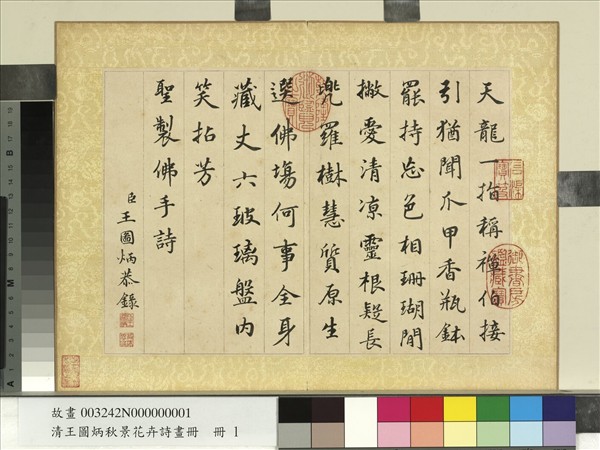 天龍一指稱禪伯接
引猶聞爪甲香瓶鉢
罷持忘色相珊瑚閒
撇愛清凉靈根疑長
兜羅樹慧質原生
選佛塲何事全身
藏丈六玻璃盤內
笑拈芳
聖製佛手詩
臣王圖炳恭錄
御書房鑑藏寶
故畫 003242N000000001
清王圖炳秋景花卉詩畫冊 冊 1